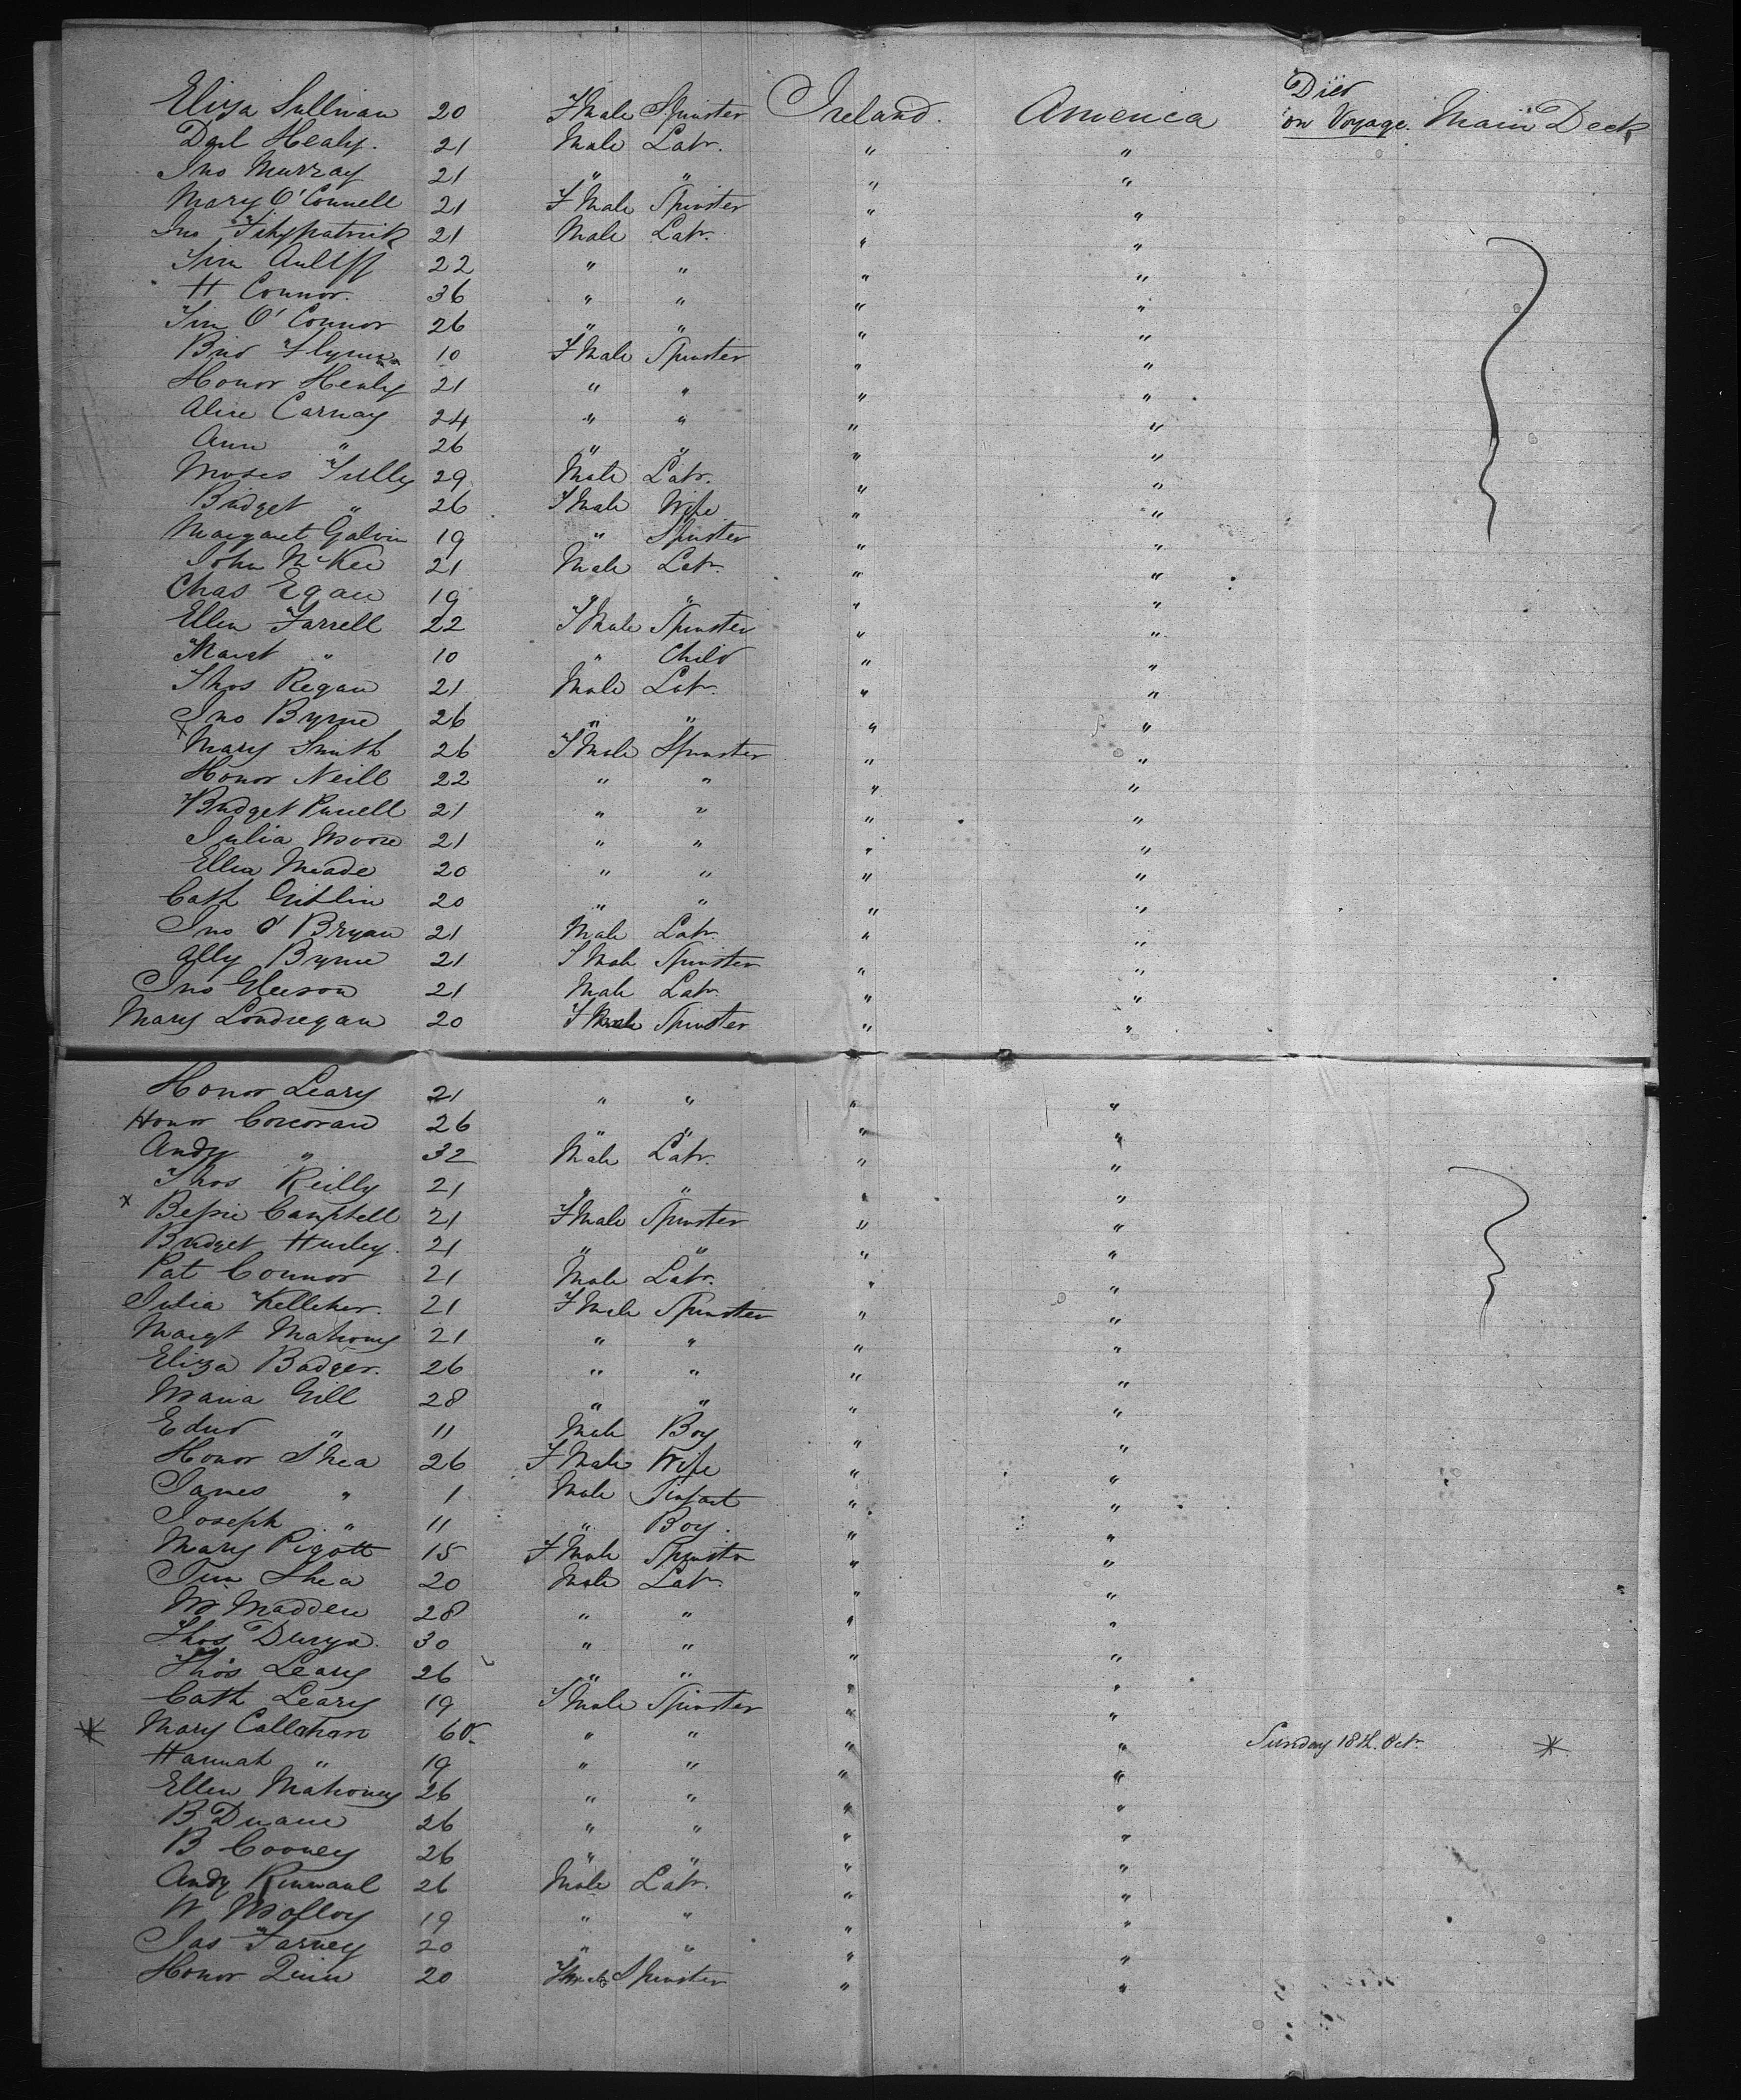 Died
Eliza Sullivan 20 FMale Spinster Ireland. America on Voyage. Main Deck
Danl Healy. 21 Male Labr. " "
Jno Murray 21 " " " "
Mary O'Connell 21 FMale Spinster " "
Jno Fitzpatrick 21 Male Labr. " "
Jim 22 " " " "
H Connor. 36 " " " "
Jim O'Connor 26 " " " "
Brid Flynn 10 FMale Spinster " "
Honor Healy 21 " " " "
Alice Carnay 24 " " " "
Ann " 26 " " " "
Moses Tully 29 Male Labr. " "
Bridget " 26 FMale Wife " "
Margaret Galvin 19 " Spinster " "
John McKee 21 Male Labr. " "
Chas Egan 19 " " " "
Ellen Farrell 22 FMale Spinster " "
Margt " 10 " Child " "
Thos Regan 21 Male Labr. " "
Jno Byrne 26 " " " "
x Mary Smith 26 FMale Spinster " "
Honor Neill 22 " " " "
Bridget Purcell 21 " " " "
Julia Moore 21 " " " "
Ellen Meade 20 " " " "
Cath Giblin 20 " " " "
Jno O'Bryan 21 Male Labr. " "
Ally Byrne 21 FMale Spinster " "
Jno Gleeson 21 Male Labr. " "
Mary Londregan 20 FMale Spinster " "
Honor Leary 21 " " " "
Honor Corcoran 26 " " " "
Andy " 32 Male Labr. " "
Thos Reilly 21 " " " "
x Bessie Campbell 21 FMale Spinster " "
Bridget Hurley. 21 " " " "
Pat Connor 21 Male Labr. " "
Julia Kelleher. 21 FMale Spinster " "
Margt Mahony 21 " " " "
Eliza Badger. 26 " " " "
Maria Gill 28 " " " "
Edwd " 11 Male Boy " "
Honor Shea 26 FMale Wife " "
James " 1 Male Infant " "
Joseph " 11 " Boy. " "
Mary Pigott 15 FMale Spinster " "
Jim Shea 20 Male Labr. " "
W Madden 28 " " " "
Thos 30 " " " "
Thos Leary 26 " " " "
Cath Leary 19 FMale Spinster " "
* Mary Callahan 60 " " " " Sunday 18th. Oct. *
Hannah " 19 " " " "
Ellen Mahoney 26 " " " "
B Duane 26 " " " "
B Cooney 26 " " " "
Andy 26 Male Labr. " "
W Molloy 19 " " " "
Jas Farney 20 " " " "
Honor Quin 20 FMale Spinster " "